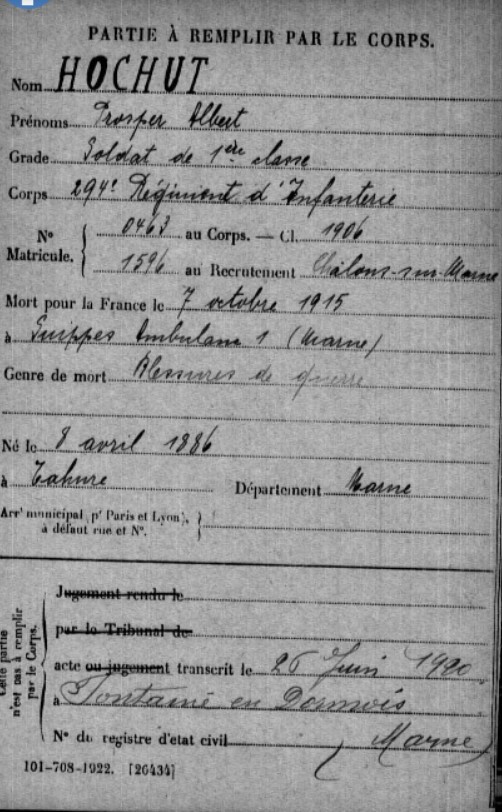 PARTIE À REMPLIR PAR LE CORPS.
Nom HOCHUT
Prénoms Prosper Albert
Grade Soldat de 1ère classe
Corps 294e Régiment d'Infanterie
N° Matricule. { 0463 au Corps. — Cl. 1906
1596 au Recrutement Châlons-sur-Marne
Mort pour la France le 7 octobre 1915
à Suippes Ambulance 1 (Marne)
Genre de mort Blessures de guerre
Né le 8 avril 1886
à Tahure Département Marne
Arrt municipal (pr Paris et Lyon),
à défaut rue et N°.
Cette partie
n'est pas à remplir
par le Corps.
Jugement rendu le
par le Tribunal de
acte ou jugement transcrit le 26 Juin 1920
à Fontaine en Dormois
N° du registre d'état civil Marne
101-708-1922. [26434]